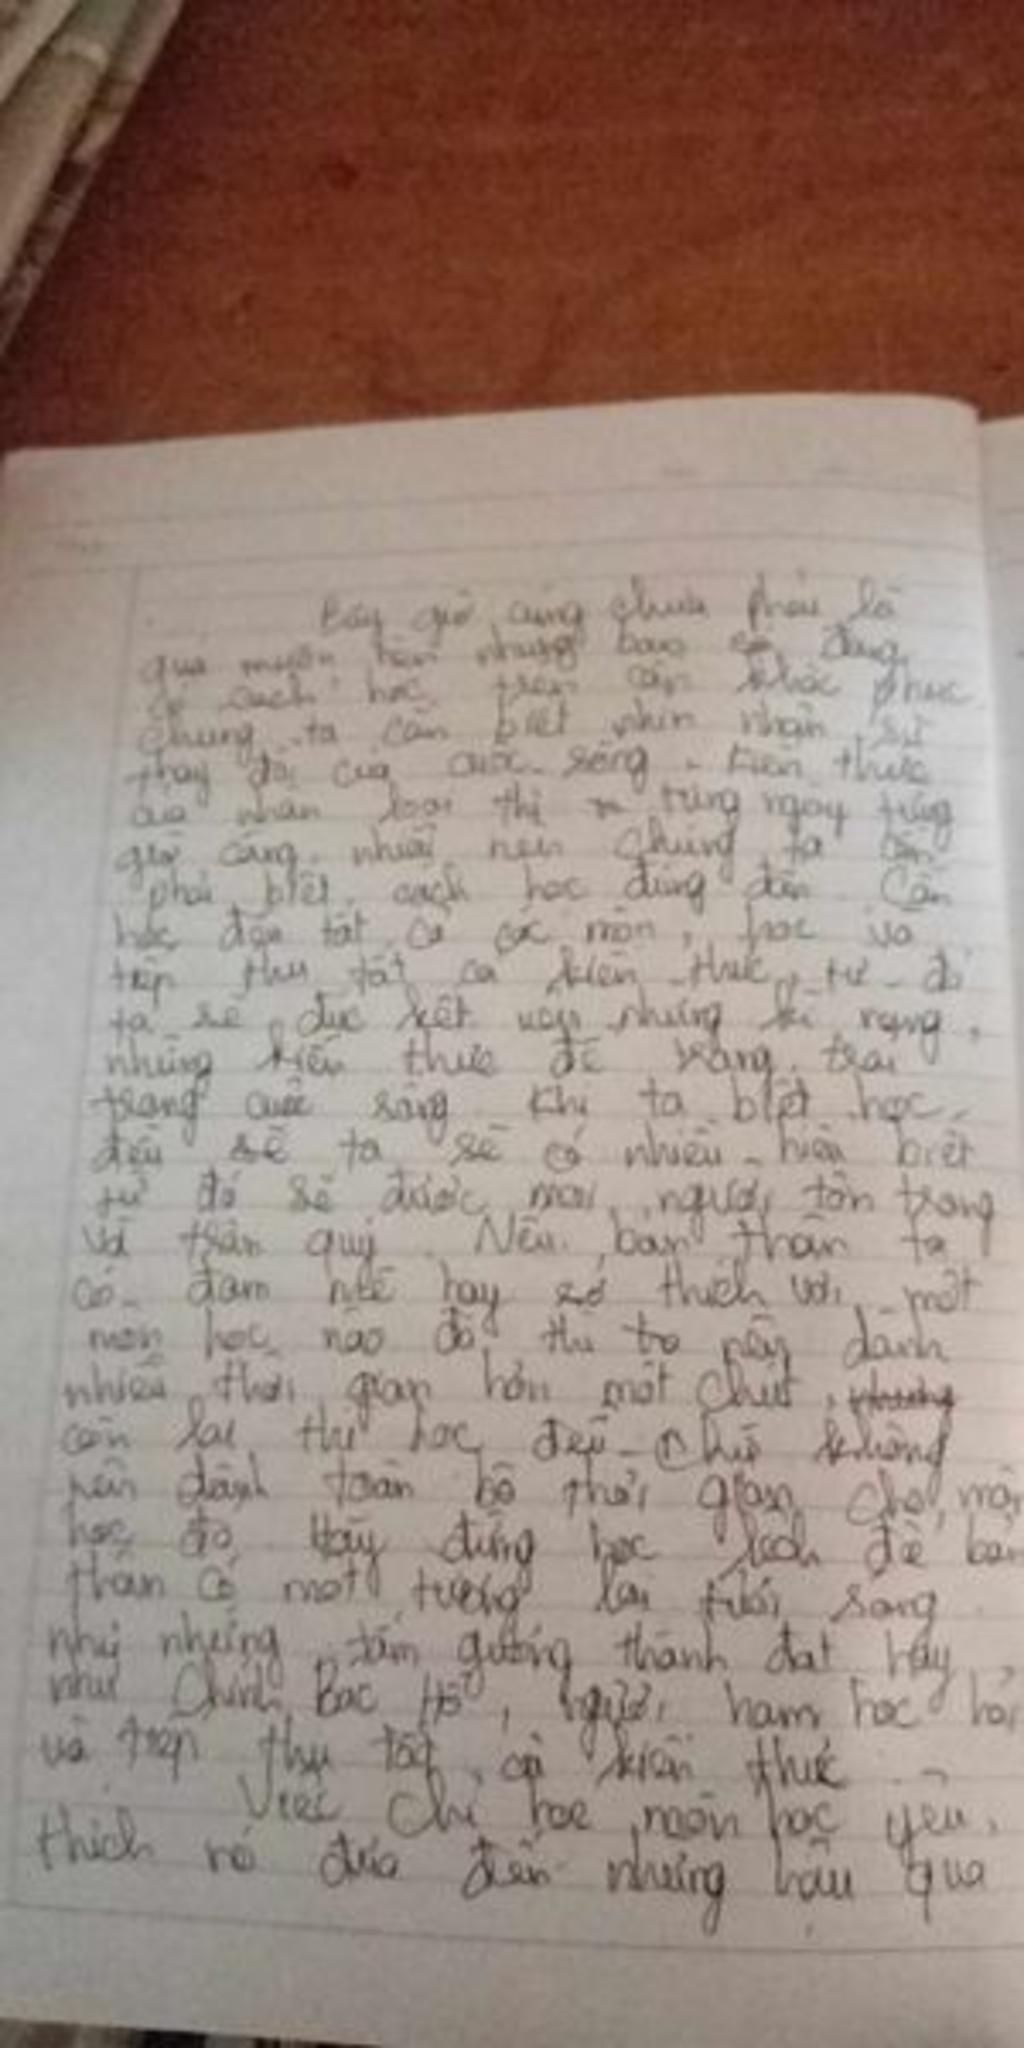 Bây giờ cũng chưa phải là
quá muộn nhưng bao
cách học trên cần khắc phục
chúng ta cần biết nhìn nhận sự
thay đổi của cuộc sống. Kiến thức
của nhân loại thì từng ngày từng
giờ càng nhiều nên chúng ta cần
phải biết cách học đúng đắn. Cần
học đều tất cả các môn, học và
tiếp thu tất cả kiến thức, từ đó
ta sẽ đúc kết nên những kĩ năng,
những kiến thức để trang trải
trong cuộc sống. Khi ta biết học
đều sẽ ta sẽ có nhiều hiểu biết
từ đó sẽ được mọi người tôn trọng
và trân quý. Nếu bản thân ta
có đam mê hay sở thích với một
môn học nào đó thì ta nên dành
nhiều thời gian hơn một chút,
còn lại thì học đều chứ không
nên dành toàn bộ thời gian cho môn
học đó. Hãy đừng học lệch để bản
thân có một tương lai tươi sáng
như những tấm gương thành đạt hay
như chính Bác Hồ, người ham học hỏi
và tiếp thu tất cả kiến thức.
Việc chỉ học môn học yêu
thích nó đưa đến những hậu quả